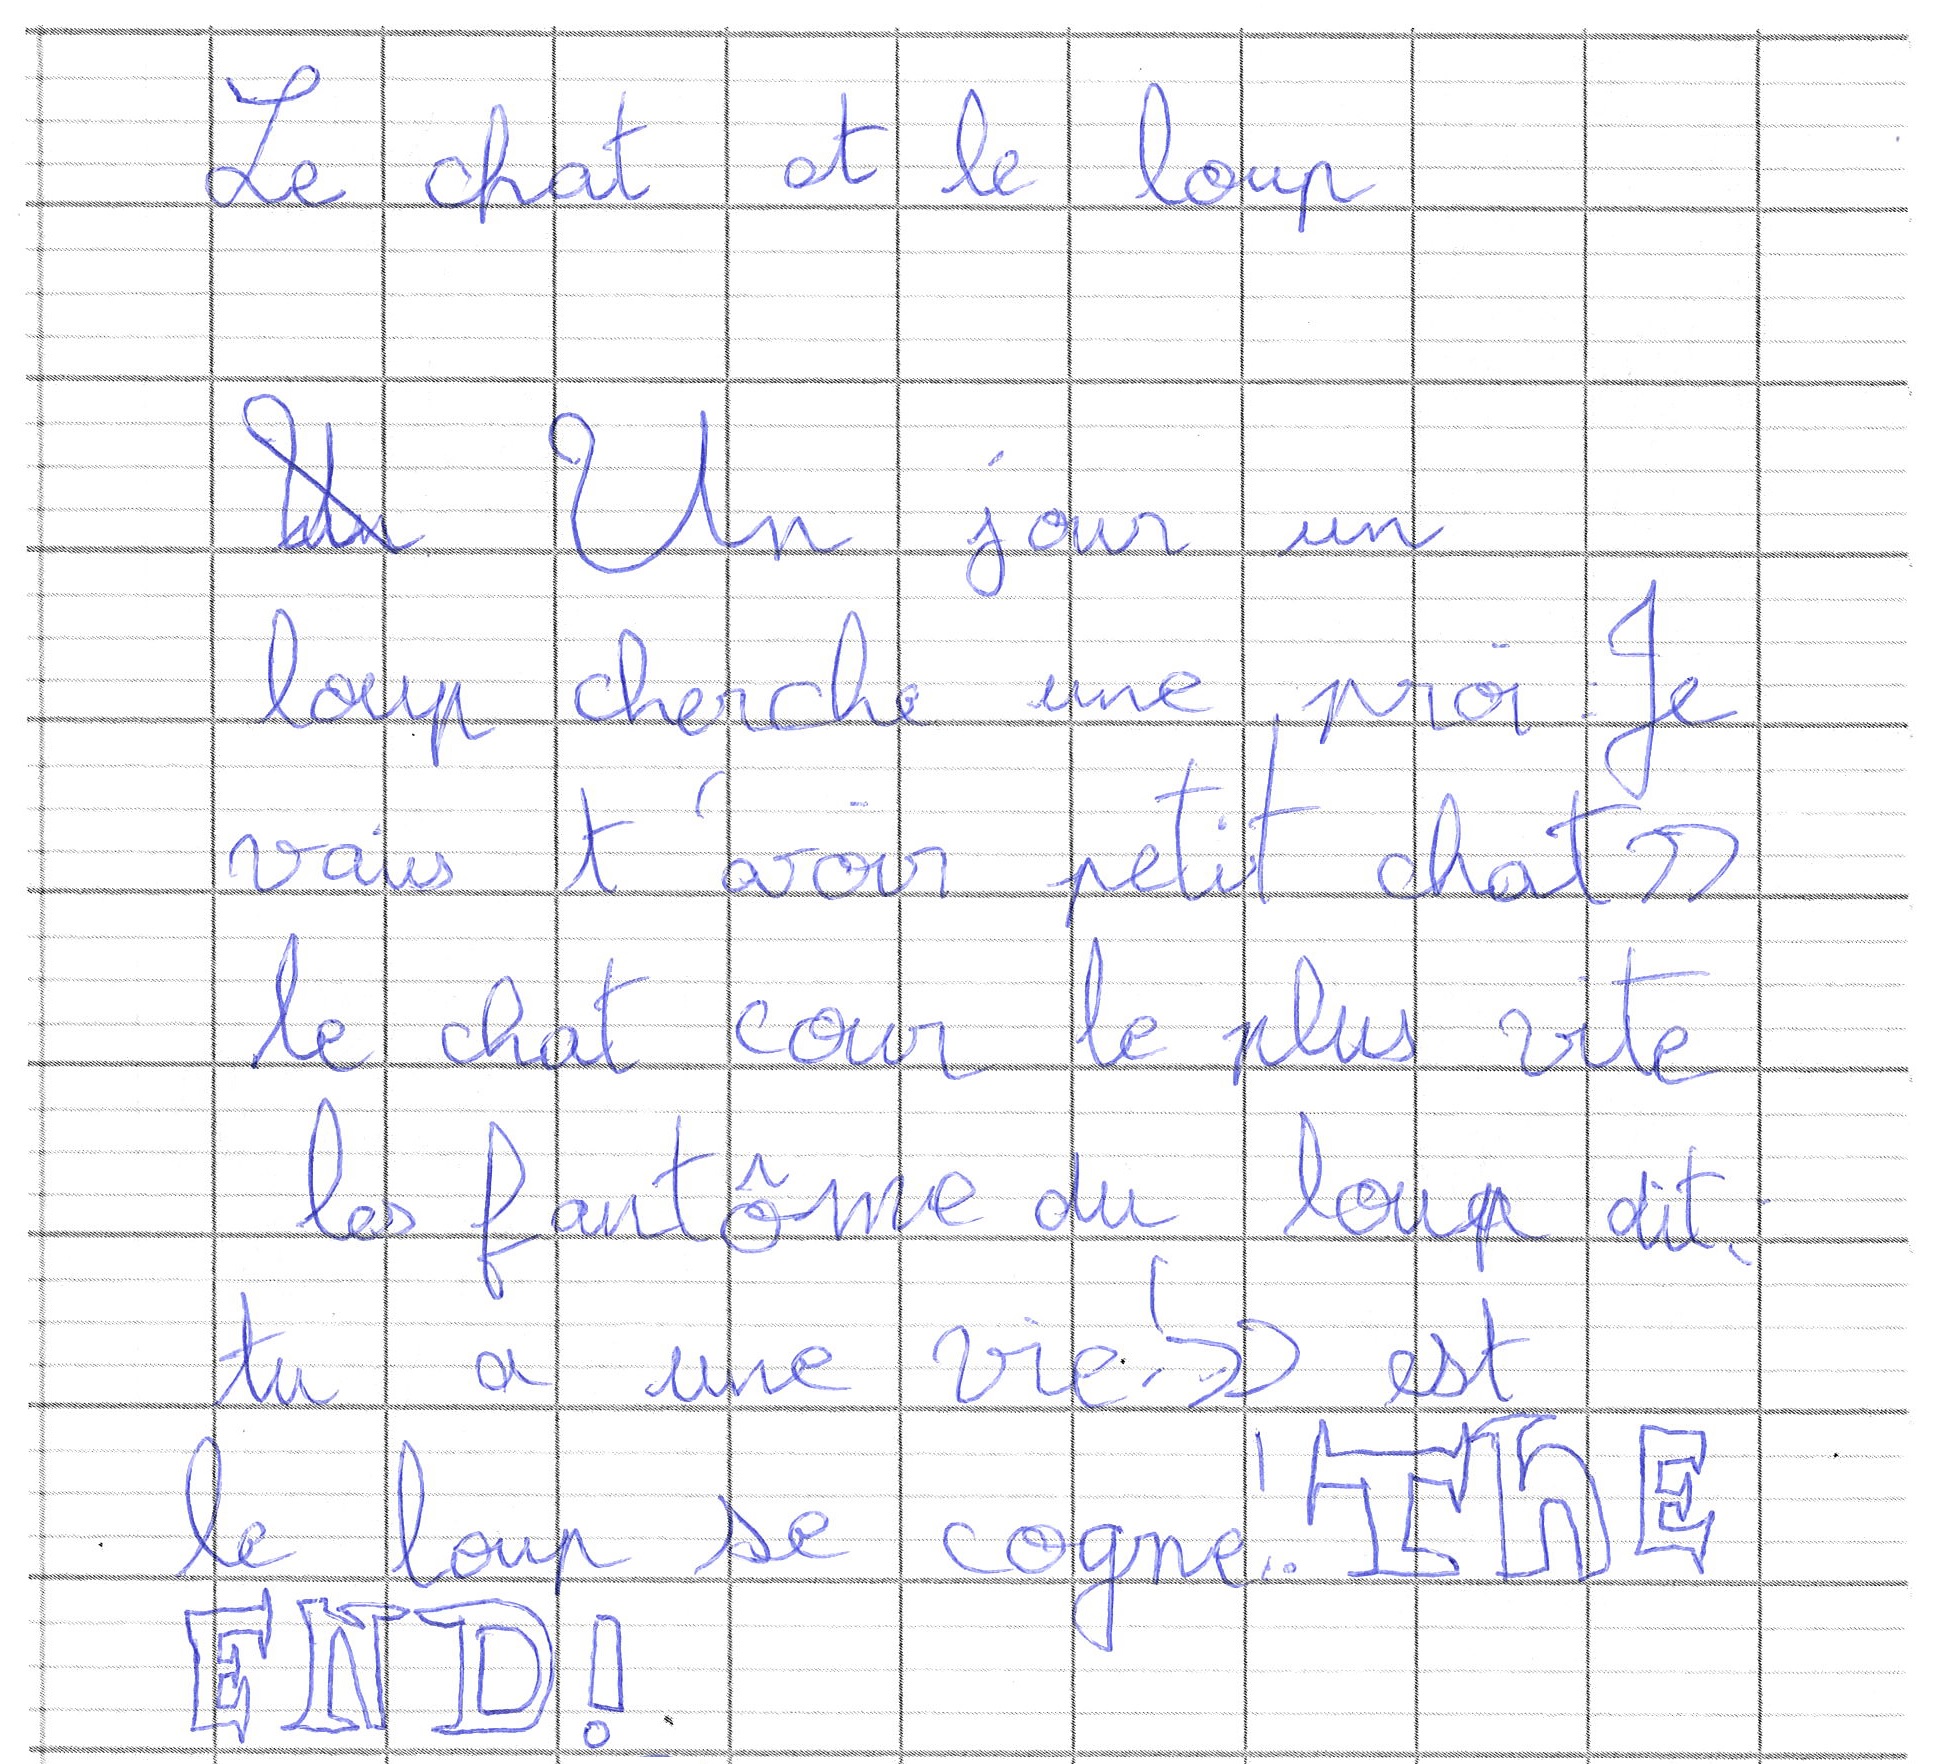 Le chat et le loup
Un Un jour un
loup cherche une proi. Je
vais t'avoir petit chat»
le chat cour le plus vite
les fantôme du loup dit.
tu a une vie!» est
le loup se cogne!. ThE
END!